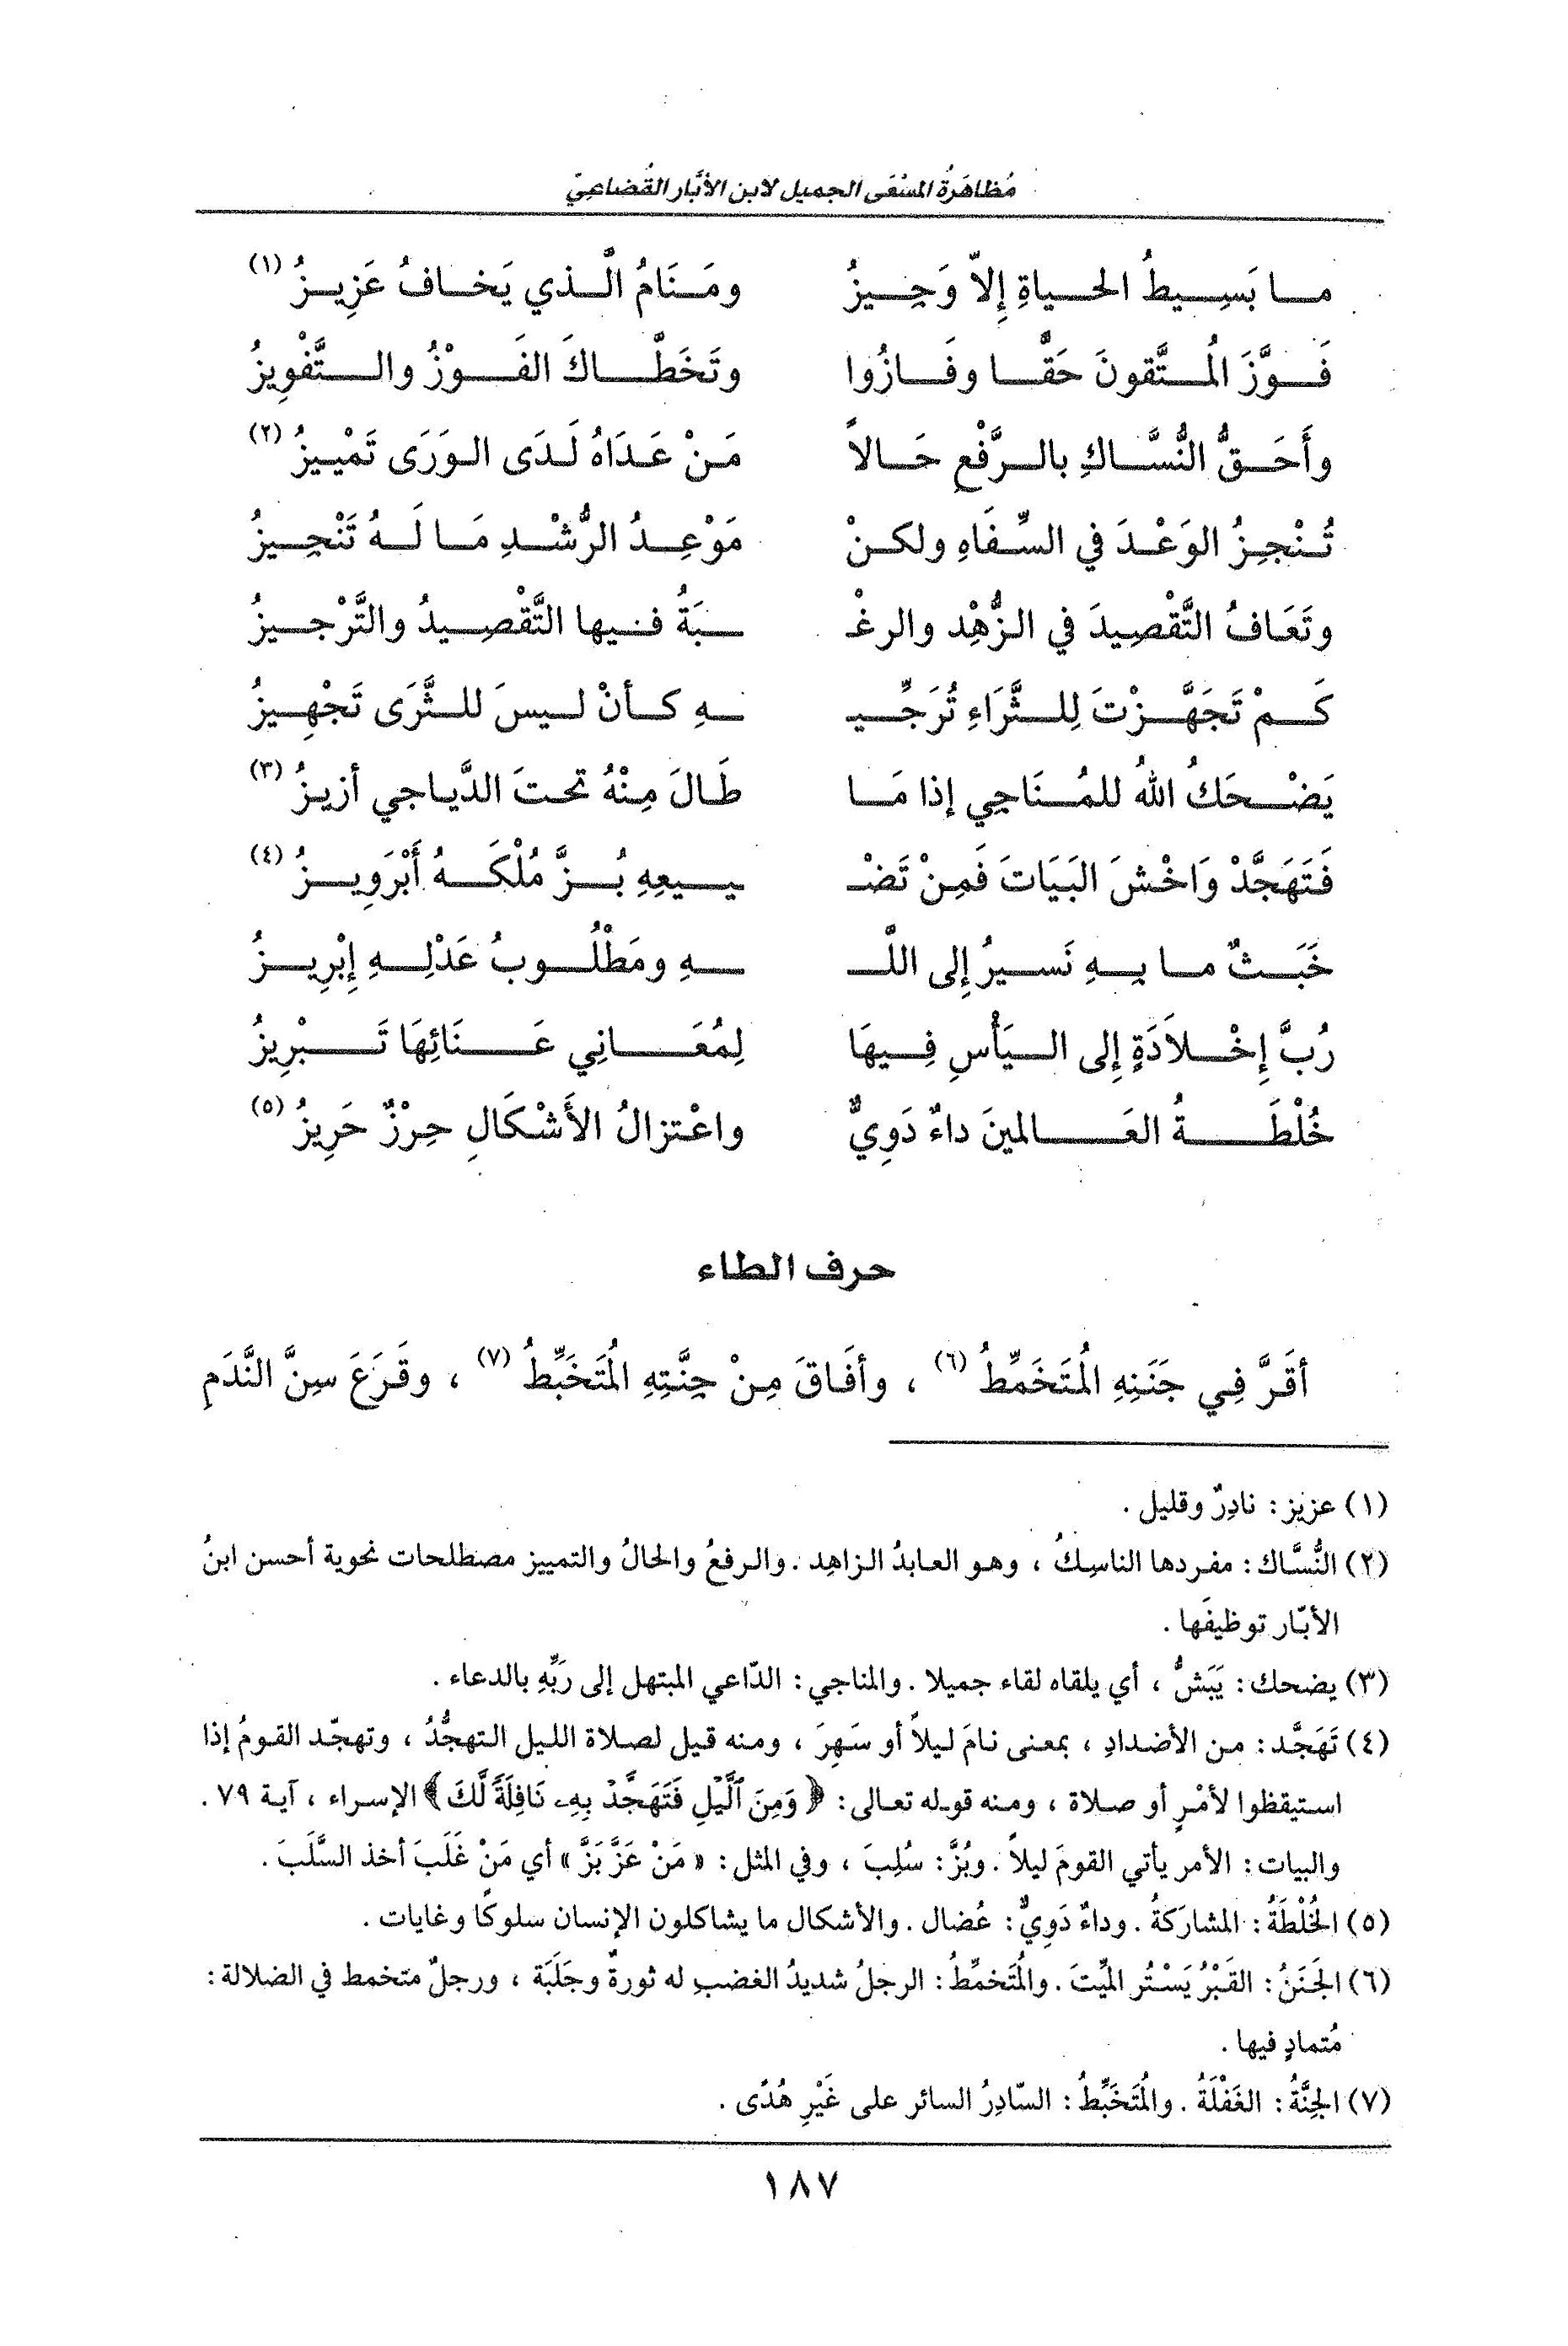 مُظاهَرةُ المَسْعَى الجميل لابن الأبَّار القُضاعيّ
مـا بَسِيطُ الحياةِ إِلاّ وَجِيزُ ومَنَامُ الَّذي يَخافُ عَزِيزُ (١)
فَوَّزَ المُتَّقونَ حَقًّا وفَازُوا وتَخَطَّاكَ الفَوْزُ والتَّفْوِيزُ
وأَحَقُّ النُّسَّاكِ بالرَّفْعِ حَالاً مَنْ عَدَاهُ لَدَى الوَرَى تَمْيِيزُ (٢)
تُنْجِزُ الوَعْدَ في السِّفَاهِ ولكنْ مَوْعِدُ الرُّشْدِ مَا لَهُ تَنْجِيزُ
وتَعَافُ التَّقْصِيدَ في الزُّهْدِ والرغْـ ـبَةُ فيها التَّقْصِيدُ والتَّرْجيزُ
كَمْ تَجَهَّزْتَ لِلثَّرَاءِ تُرَجِّيـ ـهِ كأنْ ليسَ للثَّرَى تَجْهِيزُ
يَضْحَكُ اللهُ للمُنَاجِي إذا مَا طَالَ مِنْهُ تحتَ الدَّياجي أزيزُ (٣)
فَتَهَجَّدْ وَاخْشَ البَيَاتَ فَمِنْ تَضْـ ـييعِهِ بُزَّ مُلْكَهُ أَبْرَوِيزُ (٤)
خَبَثٌ ما بِهِ نَسيرُ إِلى اللَّـ ـهِ ومَطْلُوبُ عَدْلِهِ إِبْرِيزُ
رُبَّ إِخْلاَدَةٍ إِلى اليَأْسِ فِيهَا لِمُعَانِي عَنَائِهَا تَبْرِيزُ
خُلْطَةُ العَالمينَ داءٌ دَوِيٌّ واعْتزالُ الأَشْكَالِ حِرْزٌ حَرِيزُ (٥)
حرف الطاء
أقَرَّ فِي جَنَنِهِ المُتَخَمِّطُ (٦) ، وأفَاقَ مِنْ جِنَّتِهِ المُتَخَبِّطُ (٧) ، وقَرَعَ سِنَّ النَّدَمِ
(١) عزيز : نادِرٌ وقليل .
(٢) النُّسَّاك : مفردها الناسِكُ ، وهو العابدُ الزاهِد . والرفعُ والحالُ والتمييز مصطلحات نحوية أحسن ابنُ
الأبّار توظيفَها .
(٣) يضحك : يَبَشُّ ، أي يلقاه لقاء جميلا . والمناجي : الدّاعي المبتهل إلى رَبِّهِ بالدعاء .
(٤) تَهَجَّد : من الأضدادِ ، بمعنى نامَ ليلاً أو سَهِرَ ، ومنه قيل لصلاة الليل التهجُّدُ ، وتهجّد القومُ إذا
استيقظوا لأمْرٍ أو صلاة ، ومنه قوله تعالى : ﴿ وَمِنَ ٱلَّيْلِ فَتَهَجَّدْ بِهِۦ نَافِلَةً لَّكَ ﴾ الإسراء ، آية ٧٩ .
والبيات : الأمر يأتي القومَ ليلاً . وبُزَّ : سُلِبَ ، وفي المثل : « مَنْ عَزَّ بَزَّ » أي مَنْ غَلَبَ أخذ السَّلَبَ .
(٥) الخُلْطَةُ : المشارَكةُ . وداءٌ دَوِيٌّ : عُضال . والأشكال ما يشاكلون الإنسان سلوكًا وغايات .
(٦) الجَنَنُ : القَبْرُ يَسْتُر الميِّتَ . والمُتَخمِّطُ : الرجلُ شديدُ الغضبِ له ثورةٌ وجَلَبَة ، ورجلٌ متخمط في الضلالة :
مُتمادٍ فيها .
(٧) الجِنَّةُ : الغَفْلَةُ . والمُتَخَبِّطُ : السّادِرُ السائر على غَيْرِ هُدًى .
١٨٧